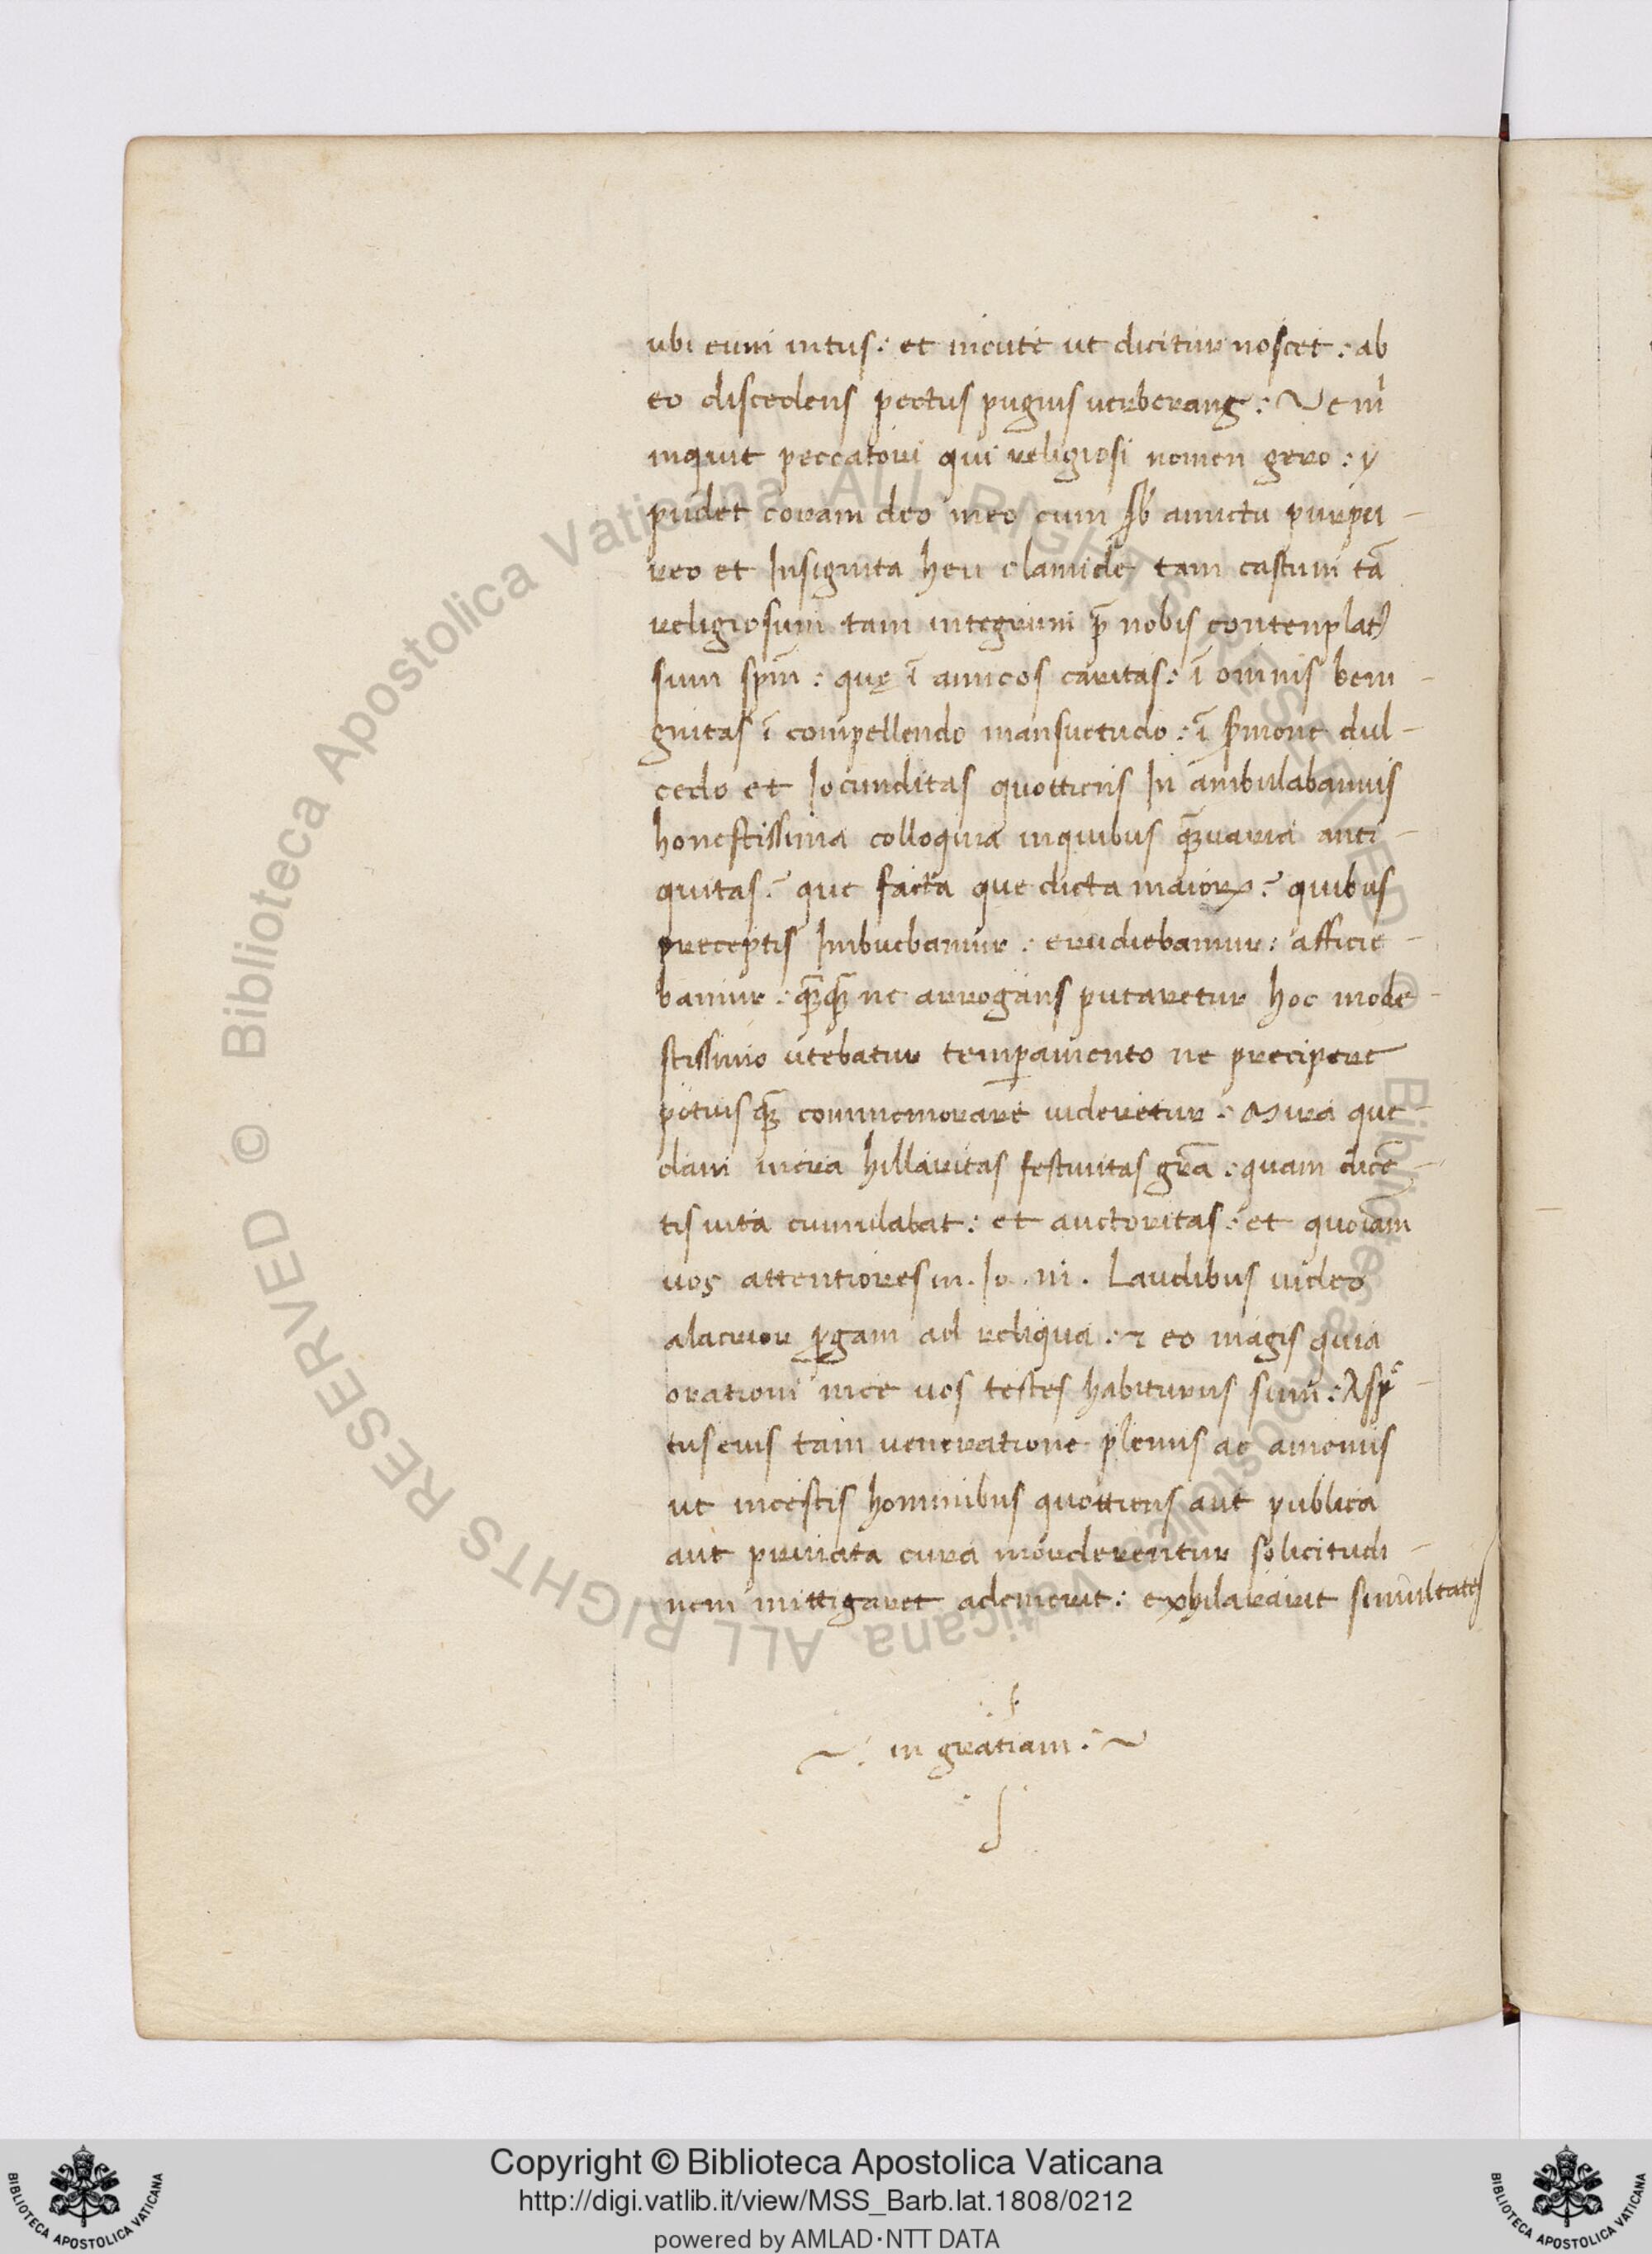 ubi eum intus: et incute ut dicitur noscet: ab
eo discedens pectus pugnis uerberans: Ve m̄
inquit peccatori qui religiosi nomen gero:
pudet coram deo meo cum sb amictu purpu-
reo et Insignita heu clamide tam castum tā
religiosum tam integrum p̄ nobis contenplat
sum spm̄: quę ī amicos caritas: ī omnis beni-
gnitas ī compellendo mansuetudo: ī sermone dul-
cedo et Iocunditas quottiens In ambulabamus
honestissima colloquia inquibus uaria anti-
quitas? que facta que dicta maiorꝝ? quibus
preceptis Imbuebamur: erudiebamur: afficie-
bamur: ne arrogans putaretur hoc mode-
stissimo utebatur temꝑamento ne precipere
potius commemorare uideretur: Mira que-
dam intra hillaritas festiuitas gr̄a: quam dicē-
tis uita cumulabat: et auctoritas: et quoniam
uos attentiores in. Io. m. Laudibus uideo
alacrior ꝑgam ad reliqua: ⁊ eo magis quia
orationi mee uos testes habiturus sum: Asp-
tus eius tam ueneratione plenus ac amenus
ut incestis hominibus quottiens aut publica
aut priuata cura morderentur solicitudi-
nem mittigaret ademerit: exhilararit simultates
in gratiam:
© Biblioteca Apostolica Vaticana ALL RIGHTS RESERVED © Biblioteca Apostolica Vaticana ALL RIGHTS RESERVED
Copyright © Biblioteca Apostolica Vaticana
http://digi.vatlib.it/view/MSS_Barb.lat.1808/0212
powered by AMLAD·NTT DATA
BIBLIOTECA APOSTOLICA VATICANA
BIBLIOTECA APOSTOLICA VATICANA